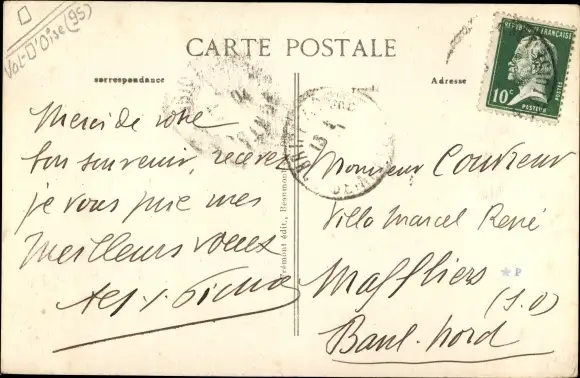 Val-D'Oise (95)
CARTE POSTALE
Correspondance
Adresse
REPUBLIQUE FRANÇAISE
10c
POSTES
PASTEUR
Merci de votre
bon souvenir, recevez
je vous prie mes
meilleurs voeux
Monsieur Couvreur
Villa Marcel René
Maffliers
(S.O)
Banl. Nord
Frémont édit., Beaumont
* P